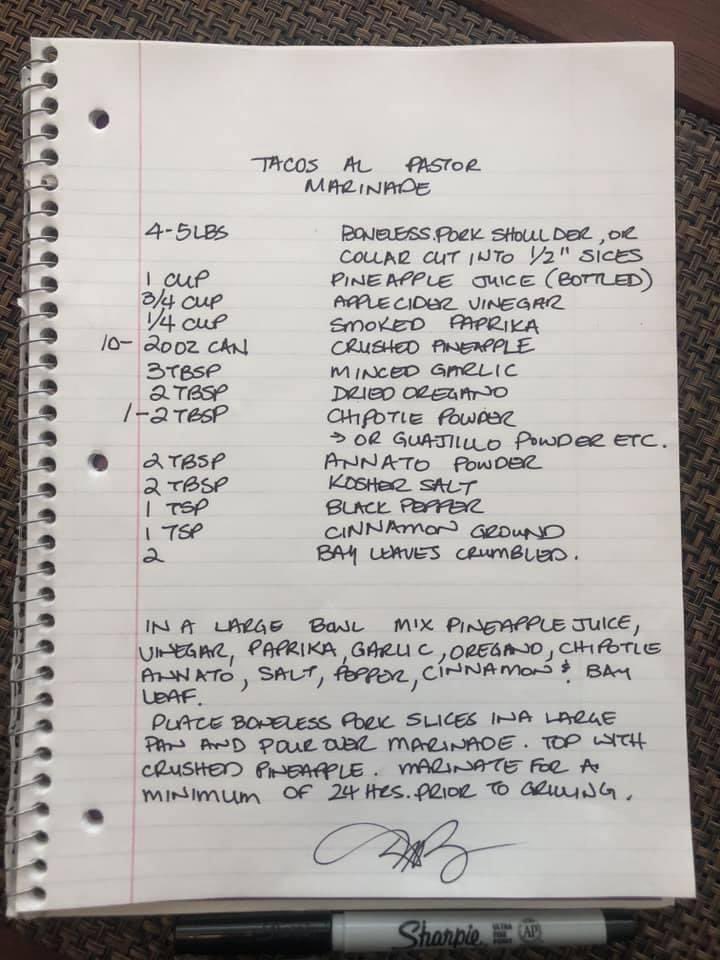 TACOS AL PASTOR
MARINADE
4-5LBS BONELESS.PORK SHOULDER, OR
COLLAR CUT INTO 1/2" SICES
1 CUP PINEAPPLE JUICE (BOTTLED)
3/4 CUP APPLE CIDER VINEGAR
1/4 CUP SMOKED PAPRIKA
10- 20OZ CAN CRUSHED PINEAPPLE
3 TBSP MINCED GARLIC
2 TBSP DRIED OREGANO
1-2 TBSP CHIPOTLE POWDER
→ OR GUAJILLO POWDER ETC.
2 TBSP ANNATO POWDER
2 TBSP KOSHER SALT
1 TSP BLACK PEPPER
1 TSP CINNAMON GROUND
2 BAY LEAVES CRUMBLED.
IN A LARGE BOWL MIX PINEAPPLE JUICE,
VINEGAR, PAPRIKA, GARLIC, OREGANO, CHIPOTLE
ANNATO, SALT, PEPPER, CINNAMON & BAY
LEAF.
PLACE BONELESS PORK SLICES IN A LARGE
PAN AND POUR OVER MARINADE. TOP WITH
CRUSHED PINEAPPLE. MARINATE FOR A
MINIMUM OF 24 HRS. PRIOR TO GRILLING.
Sharpie ULTRA FINE POINT AP